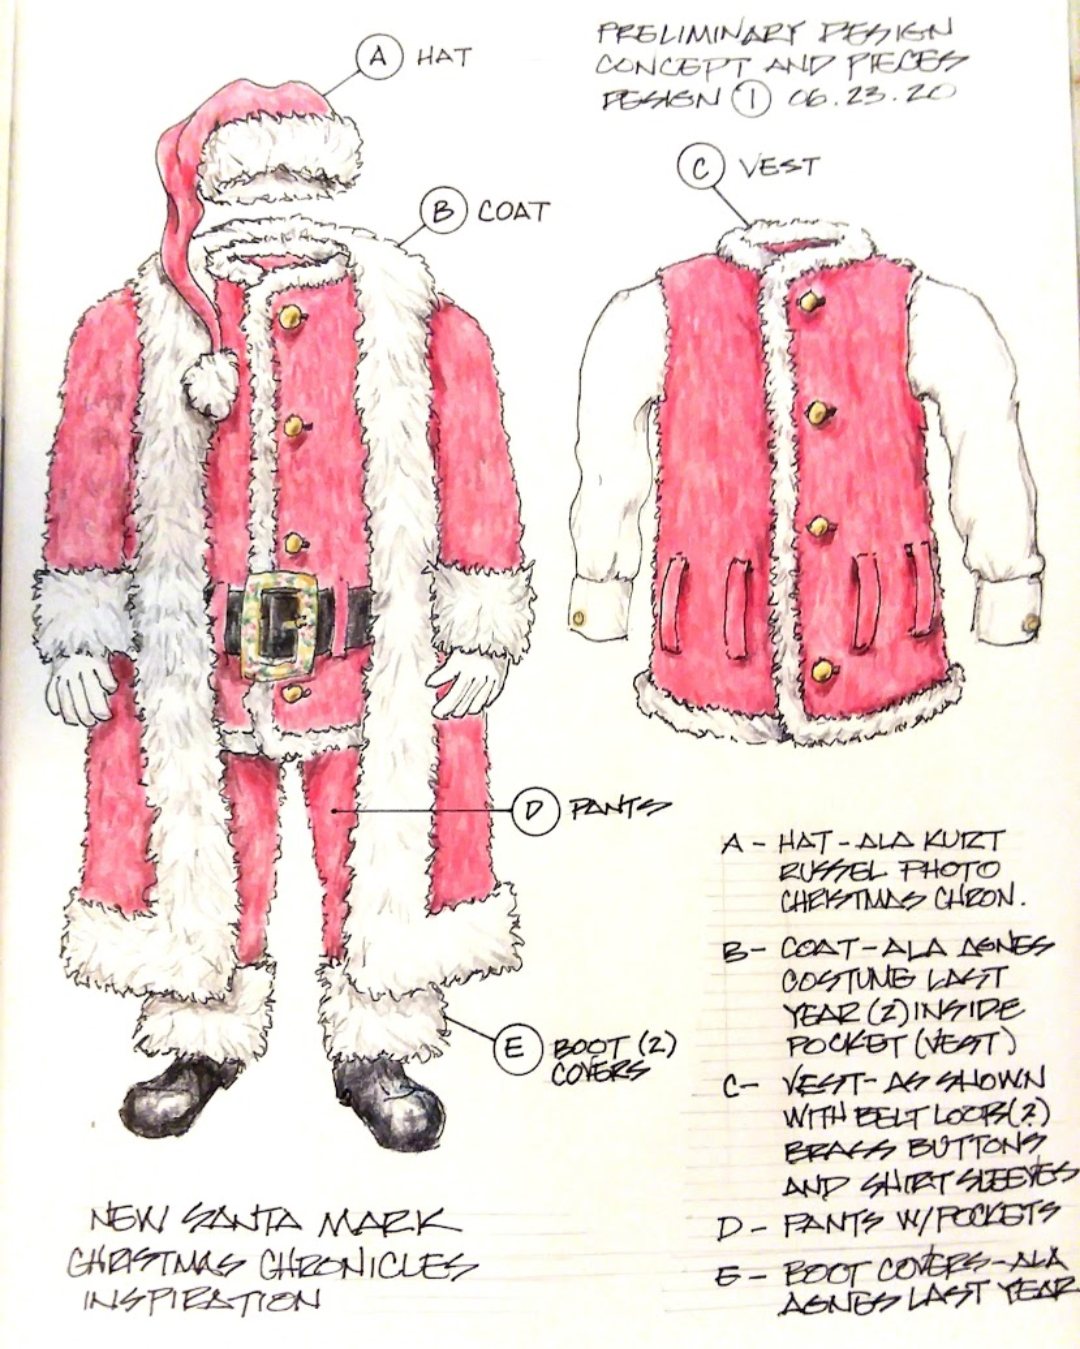 PRELIMINARY DESIGN
CONCEPT AND PIECES
DESIGN 1 06.23.20
A HAT
B COAT
C VEST
D PANTS
E BOOT (2)
COVERS
A - HAT - ALA KURT
RUSSEL PHOTO
CHRISTMAS CHRON.
B - COAT - ALA AGNES
COSTUME LAST
YEAR (2) INSIDE
POCKET (VEST)
C - VEST - AS SHOWN
WITH BELT LOOPS (?)
BRASS BUTTONS
AND SHIRT SLEEVES
D - PANTS W/POCKETS
E - BOOT COVERS - ALA
AGNES LAST YEAR
NEW SANTA MARK
CHRISTMAS CHRONICLES
INSPIRATION